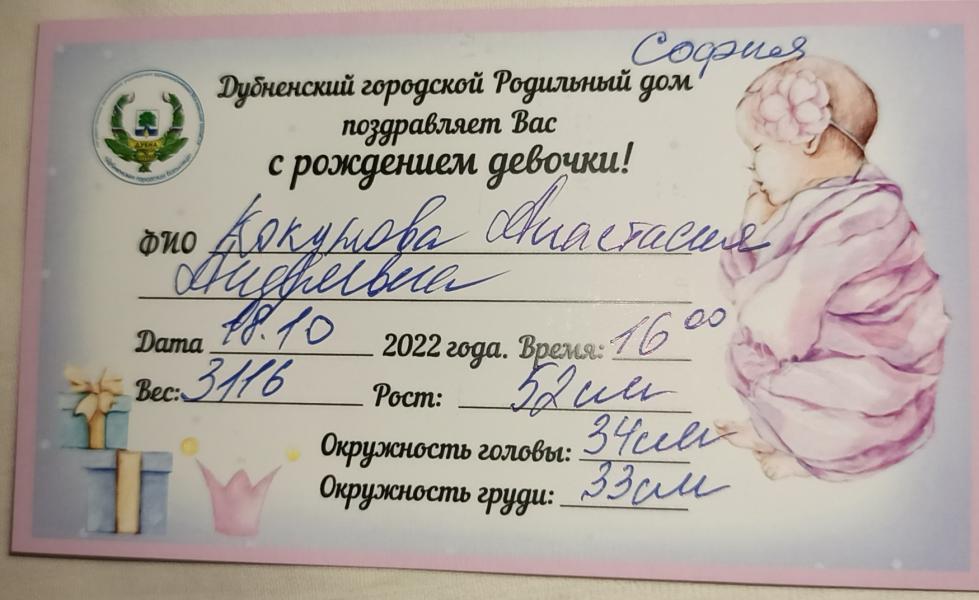 София
Дубненский городской Родильный дом
поздравляет Вас
с рождением девочки!
ДУБНА
ФИО Кокунова Анастасия
Андреевна
Дата 18.10 2022 года. Время: 16 00
Вес: 3116 Рост: 52 см
Окружность головы: 34 см
Окружность груди: 33 см